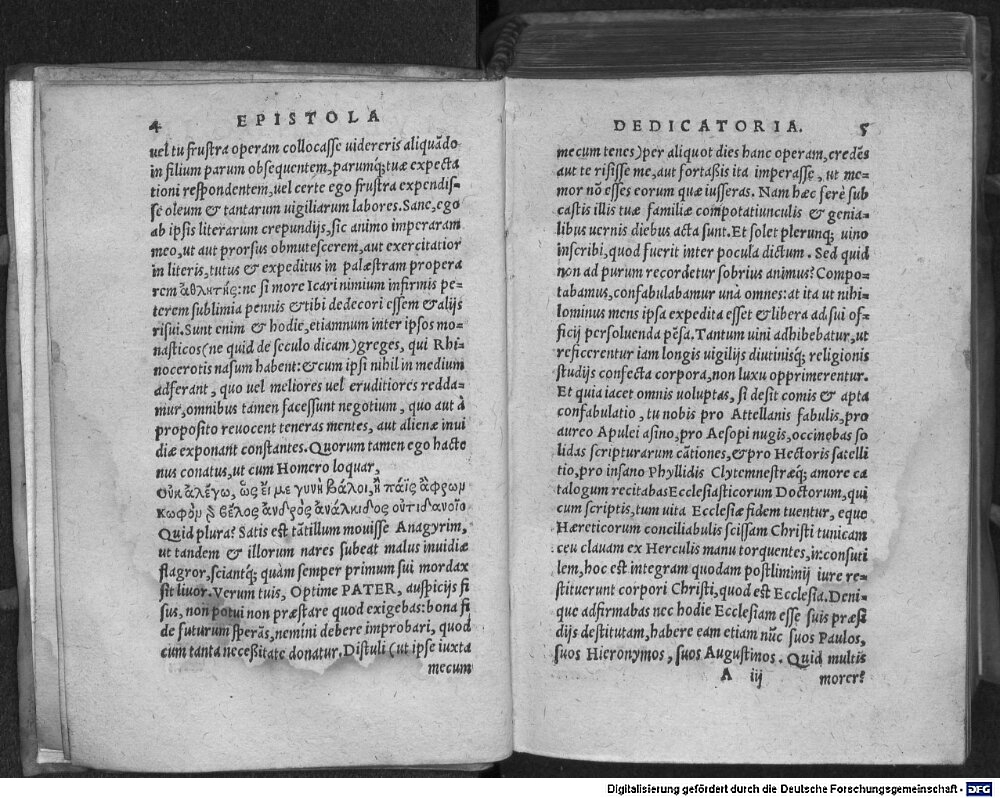 4 EPISTOLA
uel tu frustra operam collocasse uidereris aliquãdo
in filium parum obsequentem, parumq́; tuæ expecta
tioni respondentem, uel certe ego frustra expendis-
se oleum & tantarum uigiliarum labores. Sanc, ego
ab ipsis literarum crepundijs, sic animo imperaram
meo, ut aut prorsus obmutescerem, aut exercitatior
in literis, tutus & expeditus in palæstram propera
rem ἀθλητής: ne si more Icari nimium infirmis pe-
terem sublimia pennis & tibi dedecori essem & alijs
risui. Sunt enim & hodie, etiamnum inter ipsos mo-
nasticos (ne quid de seculo dicam) greges, qui Rhi-
nocerotis nasum habent: & cum ipsi nihil in medium
adferant, quo uel meliores uel eruditiores redda-
mur, omnibus tamen facessunt negotium, quo aut à
proposito reuocent teneras mentes, aut alienæ inui
diæ exponant constantes. Quorum tamen ego hacte
nus conatus, ut cum Homero loquar,
Οὐκ ἀλέγω, ὡς εἴ με γυνὴ βάλοι, ἢ πάϊς ἄφρωμ
κωφὸμ δ βέλος ἀνδρὸς ἀνάλκιδος οὐτιδανοῖο
Quid plura? Satis est tãtillum mouisse Anagyrim,
ut tandem & illorum nares subeat malus inuidiæ
flagror, sciantq́; quàm semper primum sui mordax
sit liuor. Verum tuis, Optime PATER, auspicijs fi
sus, non potui non præstare quod exigebas: bona fi
de futurum sperãs, nemini debere improbari, quod
cum tanta necessitate donatur. Distuli (ut ipse iuxta
mecum
DEDICATORIA. 5
mecum tenes) per aliquot dies hanc operam, credẽs
aut te risisse me, aut fortaßis ita imperasse, ut me-
mor nõ esses eorum quæ iusseras. Nam hæc ferè sub
castis illis tuæ familiæ compotatiunculis & genia-
libus uernis diebus acta sunt. Et solet plerunq; uino
inscribi, quod fuerit inter pocula dictum. Sed quid
non ad purum recordetur sobrius animus? Compo-
tabamus, confabulabamur unà omnes: at ita ut nihi-
lominus mens ipsa expedita esset & libera ad sui of-
ficij persoluenda pẽsa. Tantum uini adhibebatur, ut
reficerentur iam longis uigilijs diutinisq́; religionis
studijs confecta corpora, non luxu opprimerentur.
Et quia iacet omnis uoluptas, si desit comis & apta
confabulatio, tu nobis pro Attellanis fabulis, pro
aureo Apulei asino, pro Aesopi nugis, occinebas so
lidas scripturarum cãtiones, & pro Hectoris satelli
tio, pro insano Phyllidis Clytemnestræq́; amore ca
talogum recitabas Ecclesiasticorum Doctorum, qui
cum scriptis, tum uita Ecclesiæ fidem tuentur, eque
Hæreticorum conciliabulis scissam Christi tunicam
ceu clauam ex Herculis manu torquentes, inconsuti
lem, hoc est integram quodam postliminij iure re-
stituerunt corpori Christi, quod est Ecclesia. Deni-
que adfirmabas nec hodie Ecclesiam esse suis præsi
dijs destitutam, habere eam etiam nũc suos Paulos,
suos Hieronymos, suos Augustinos. Quid multis
A iij morer?
Digitalisierung gefördert durch die Deutsche Forschungsgemeinschaft - DFG